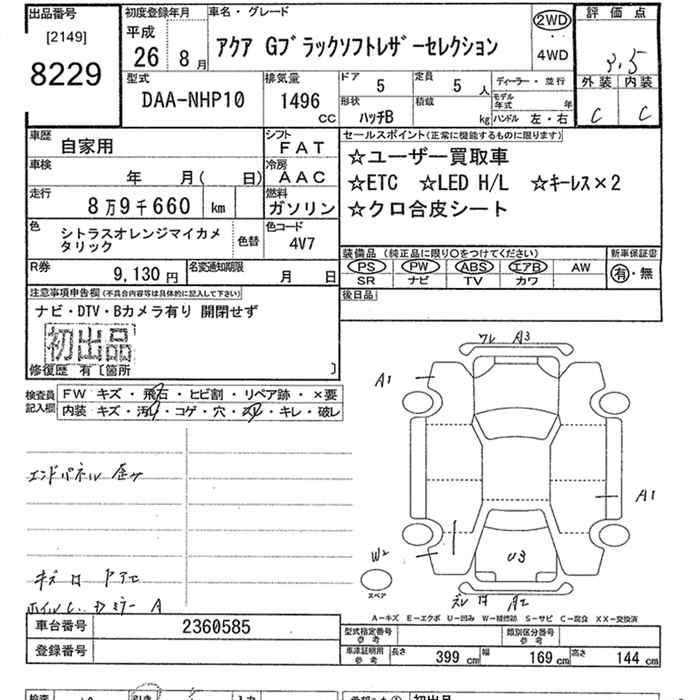 出品番号
[2149]
8229
初度登録年月
平成
26 8月
車名・グレード
アクア Gブラックソフトレザーセレクション
2WD
・
4WD
評価点
3.5
外装 内装
C C
型式
DAA-NHP10
排気量
1496
cc
ドア 5
定員 5人
形状
ハッチB
積載 kg
ディーラー・並行
モデル年式 年
ハンドル 左・右
車歴
自家用
シフト
FAT
車検
年 月( 日)
冷房
AAC
走行
8万9千660 km
燃料
ガソリン
色
シトラスオレンジマイカメ
タリック
色替
色コード
4V7
R券
9,130円
名変通知期限
月 日
セールスポイント(正常に機能するものに限ります)
☆ユーザー買取車
☆ETC ☆LED H/L ☆キーレス×2
☆クロ合皮シート
装備品 (純正品に限り○をつけてください)
新車保証書
PS PW ABS エアB AW
SR ナビ TV カワ
有・無
後日品
注意事項申告欄(不具合内容等は具体的に記入して下さい)
ナビ・DTV・Bカメラ有り 開閉せず
初出品
修復歴 有〔箇所 〕
検査員
記入欄
FW キズ・飛石・ヒビ割・リペア跡・×要
内装 キズ・汚れ・コゲ・穴・スレ・キレ・破レ
エンドパネル
ワレ A3
A1
A1
W2
U3
スペア
ズレ
A2
A-キズ E-エクボ U-凹み W-補修跡 S-サビ C-腐食 XX-交換済
車台番号
2360585
登録番号
型式指定番号
参考
類別区分番号
参考
車庫証明用
参考
長さ 399 cm
幅 169 cm
高さ 144 cm